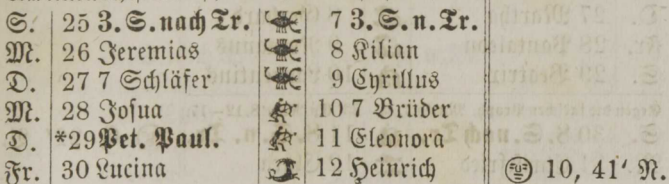 S. 25 3. S. nach Tr. 7 3. S. n. Tr.
M. 26 Jeremias 8 Kilian
D. 27 7 Schläfer 9 Cyrillus
M. 28 Josua 10 7 Brüder
D. *29 Pet. Paul. 11 Eleonora
Fr. 30 Lucina 12 Heinrich 10, 41' N.